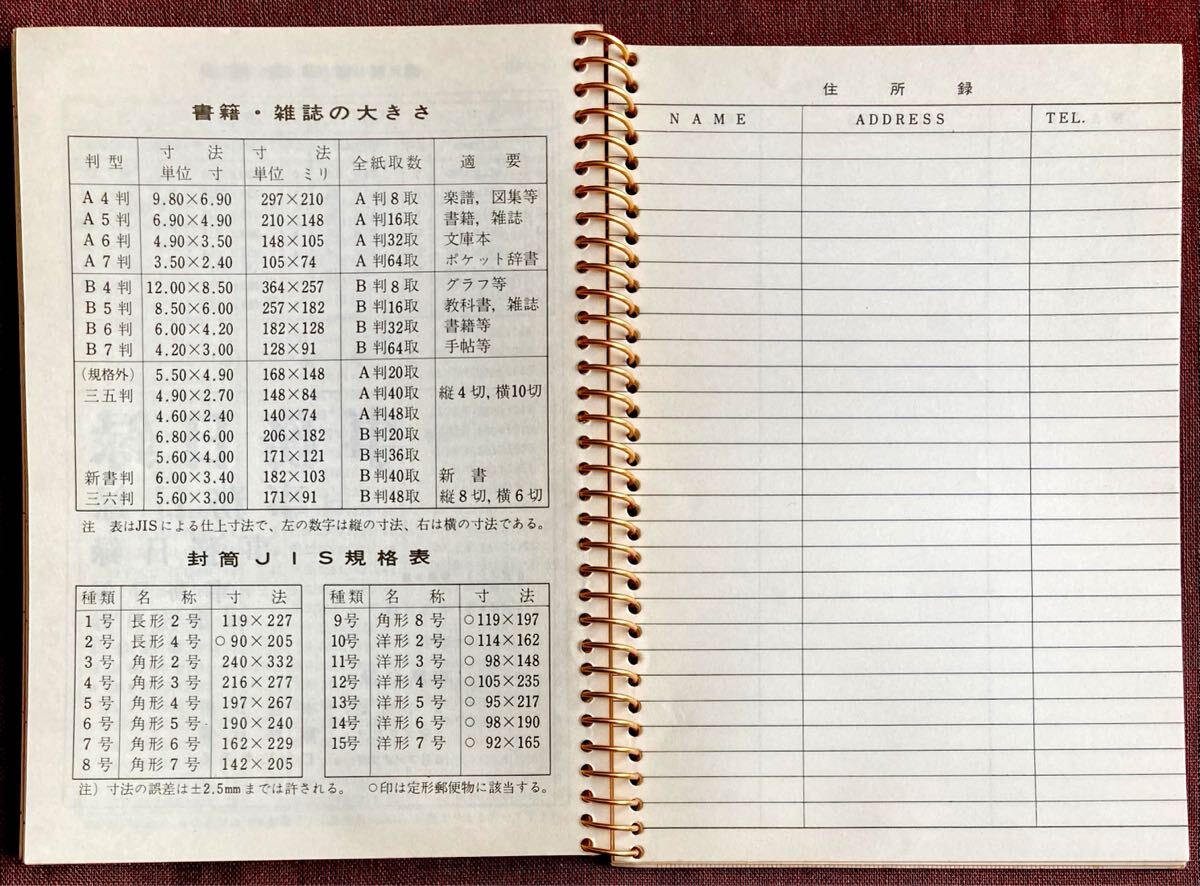 書籍・雑誌の大きさ
判型 寸法 単位 寸 寸法 単位 ミリ 全紙取数 適要
A4判 9.80×6.90 297×210 A判8取 楽譜，図集等
A5判 6.90×4.90 210×148 A判16取 書籍，雑誌
A6判 4.90×3.50 148×105 A判32取 文庫本
A7判 3.50×2.40 105×74 A判64取 ポケット辞書
B4判 12.00×8.50 364×257 B判8取 グラフ等
B5判 8.50×6.00 257×182 B判16取 教科書，雑誌
B6判 6.00×4.20 182×128 B判32取 書籍等
B7判 4.20×3.00 128×91 B判64取 手帖等
(規格外) 5.50×4.90 168×148 A判20取
三五判 4.90×2.70 148×84 A判40取 縦4切，横10切
4.60×2.40 140×74 A判48取
6.80×6.00 206×182 B判20取
5.60×4.00 171×121 B判36取
新書判 6.00×3.40 182×103 B判40取 新書
三六判 5.60×3.00 171×91 B判48取 縦8切，横6切
注 表はJISによる仕上寸法で、左の数字は縦の寸法、右は横の寸法である。
封筒JIS規格表
種類 名称 寸法
1号 長形2号 119×227
2号 長形4号 ○90×205
3号 角形2号 240×332
4号 角形3号 216×277
5号 角形4号 197×267
6号 角形5号 190×240
7号 角形6号 162×229
8号 角形7号 142×205
種類 名称 寸法
9号 角形8号 ○119×197
10号 洋形2号 ○114×162
11号 洋形3号 ○98×148
12号 洋形4号 ○105×235
13号 洋形5号 ○95×217
14号 洋形6号 ○98×190
15号 洋形7号 ○92×165
注) 寸法の誤差は±2.5mmまでは許される。 ○印は定形郵便物に該当する。
住所録
NAME ADDRESS TEL.